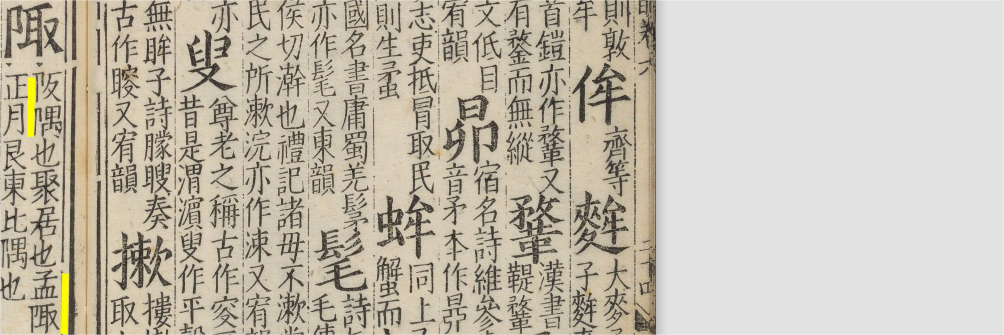 則敦
牟
侔
齊等
麰
大麥
子麰
首鎧亦作鞪又
有鍪而無縱
鞪
漢書
鞮鞪
文低目
宥韻
昴
宿名詩維參
音矛本作昴
志吏抵冒取民
則生蟊
蛑
同上
蟹而
國名書庸蜀羌髳
亦作髦又東韻
髦
詩
毛傳
侯切澣也禮記諸母不漱
民之所漱浣亦作涑又宥
亦
叟
尊老之稱古作叜
昔是渭濱叟作平
無眸子詩矇瞍奏
古作又宥韻
摟
取
陬
阪隅也聚居也孟陬
正月艮東北隅也